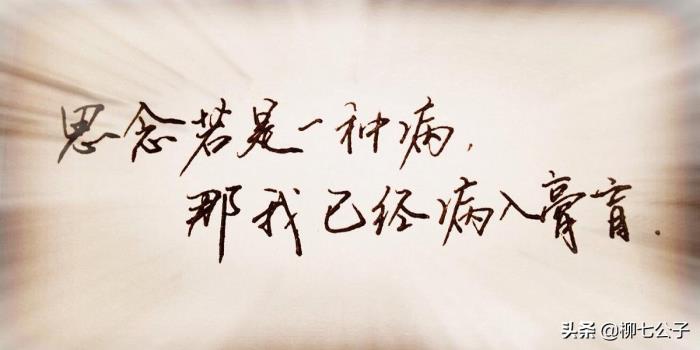 思念若是一种病，
那我已经病入膏肓.
头条 @柳七公子